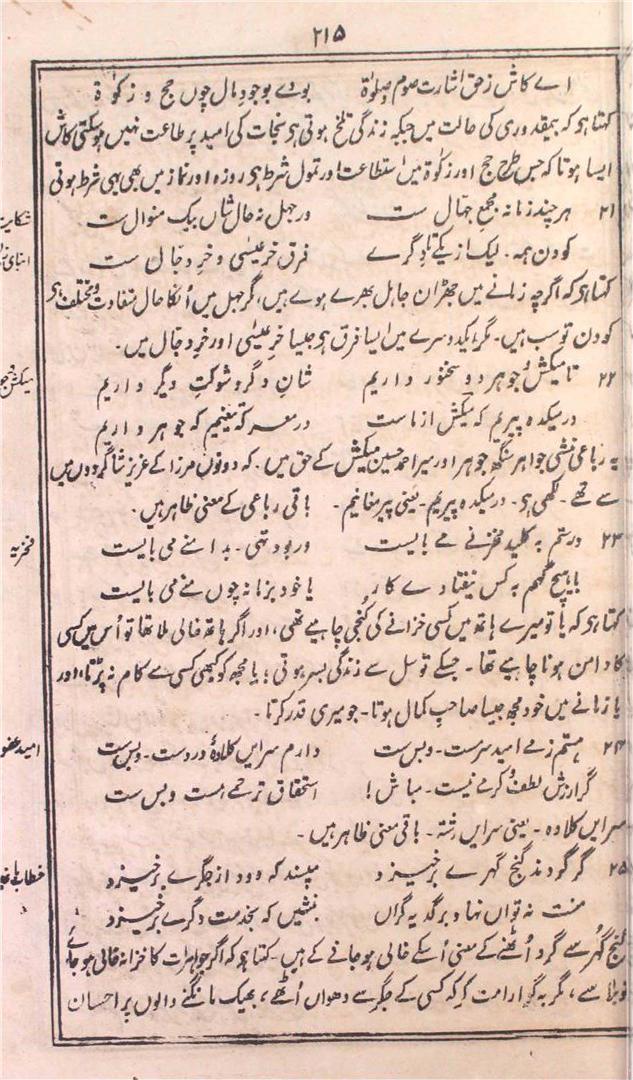 ۲۱۵
اے کاش زحق اشارت صوم وصلوٰۃ بودے بوجودِ مال چوں حج و زکوٰۃ
کہتا ہو کہ بیقدوری کی حالت میں جبکہ زندگی تلخ ہوتی ہو نجات کی امید پر طاعت نہیں ہوسکتی کاش
ایسا ہوتا کہ جس طرح حج اور زکوٰۃ میں استطاعت اور تمول شرط ہو روزہ اور نماز میں بھی یہی شرط ہوتی
۲۱ ہر چند زمانہ مجمعِ جہّال ست در جہل نہ حال شاں بیک منوال ست
شکایت
کودن ہمہ۔ لیک از یکے تا دِگرے فرق خرِ عیسٰی و خرِ دجّال ست
ابنای
کہتا ہو کہ اگرچہ زمانے میں جاہل بھرے ہوے ہیں، مگر جہل میں اُنکا حال متفاوت و مختلف ہو
کودن تو سب ہیں۔ مگر ایکدوسرے میں ایسا فرق ہو جیسا خرِ عیسٰی اور خرِ دجال میں۔
۲۲ تا میکش و جوہر دو سخنور داریم شانِ دگر و شوکتِ دیگر داریم
میکش
در میکدہ پیریم کہ میکش از ماست در معرکہ تیغیم کہ جوہر داریم
یہ رباعی منشی جواہر سنگھ جوہر اور میر احمد حسین میکش کے حق میں۔ کہ دونوں مرزا کے عزیز شاگردوں میں
سے تھے۔ لکھی ہو۔ در میکدہ پیریم۔ یعنی پیرِ مغانیم۔ باقی رباعی کے معنی ظاہر ہیں۔
۲۳ دستم بہ کلیدِ مخزنے مے بایست ور بود تہی۔ بدامنے می بایست
فخریہ
یا ہیچ گہم بہ کس نیفتادے کار یا خود بزمانہ چوں منے می بایست
کہتا ہو کہ یا تو میرے ہاتھ میں کسی خزانے کی کنجی چاہیے تھی، اور اگر ہاتھ خالی ملا تھا تو اُس میں کسی
کا دامن ہونا چاہیے تھا۔ جسکے توسل سے زندگی بسر ہوتی؛ یا مجھ کو کبھی کسی سے کام نہ پڑتا، اور
یا زمانے میں خود مجھ جیسا صاحبِ کمال ہوتا۔ جو میری قدر کرتا۔
۲۴ ہستم زمے امید سرمست۔ وبس ست دارم سرایں کلادہ در دست۔ وبس ست
امید عفو
گر ارزشِ لطف و کرمے نیست۔ مباش! استحقاق ترحمے ہست وبس ست
سرایں کلادہ۔ یعنی سرایں رشتہ۔ باقی معنی ظاہر ہیں۔
۲۵ گر گرد ز گنج گہرے برخیزد مپسند کہ دود از جگرے برخیزد
خطاب
منت نہ تواں نہاد بر گدیہ گراں بنشیں کہ بخدمت دگرے برخیزد
گنج گہر سے گرد اُٹھنے کے معنی اُسکے خالی ہو جانے کے ہیں۔ کہتا ہو کہ اگر جواہرات کا خزانہ خالی ہو جائے
تو بلا سے، مگر یہ گوارا مت کر کہ کسی کے جگر سے دھواں اُٹھے، بھیک مانگنے والوں پر احسان